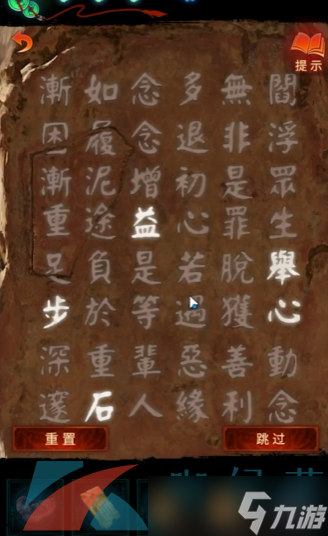 提示
閻浮眾生舉心動念
無非是罪脫獲善利
多退初心若遇惡緣
念念增益是等輩人
如履泥途負於重石
漸困漸重足步深邃
重置
跳过
九游